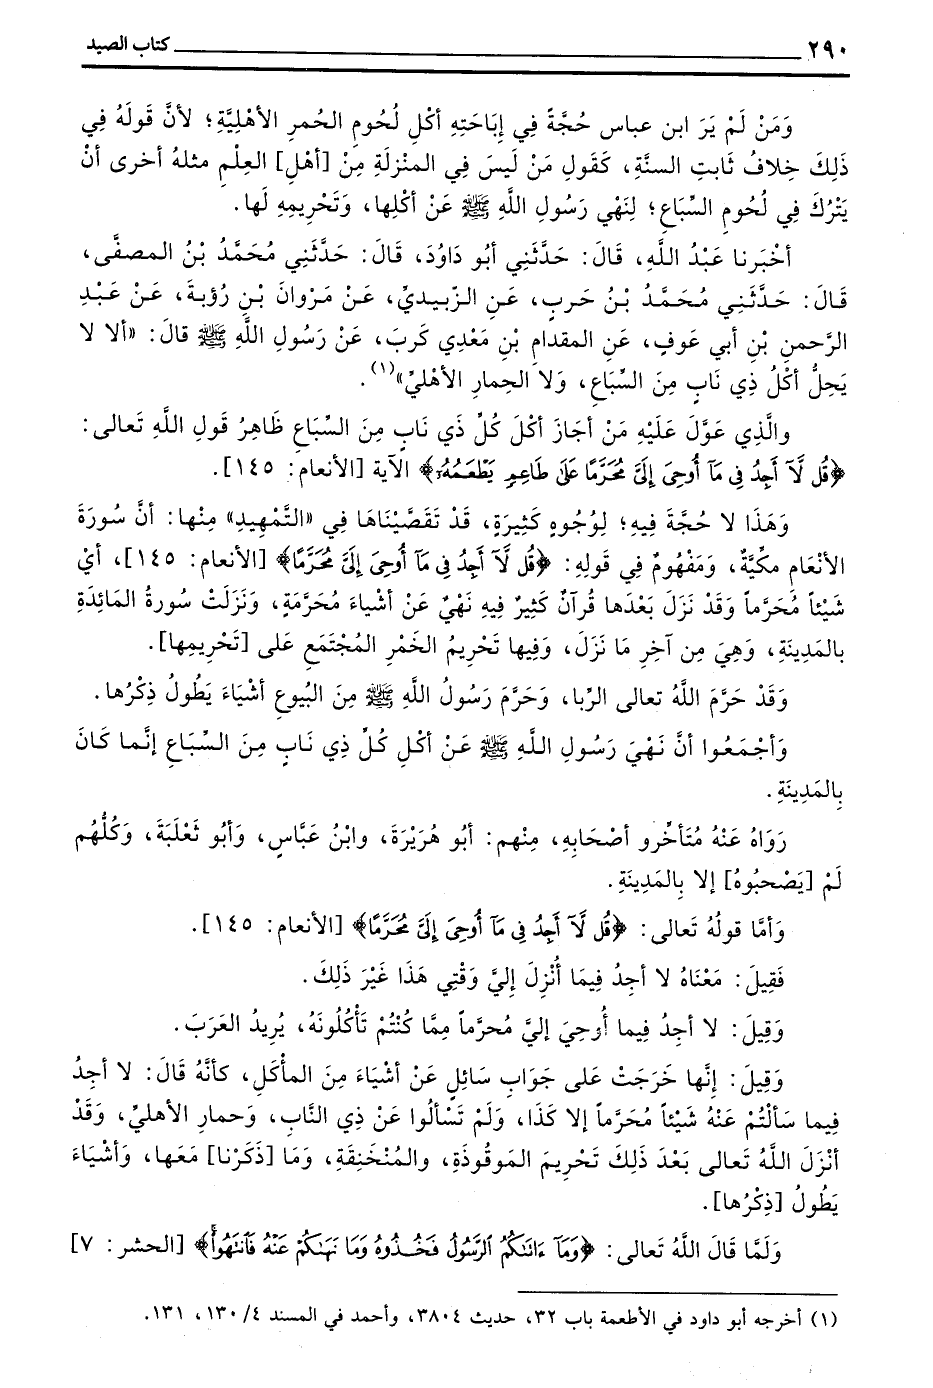 ٢٩٠ كتاب الصيد
وَمَنْ لَمْ يَرَ ابن عباس حُجَّةً فِي إِبَاحَتِهِ أكْلِ لُحُومِ الحُمرِ الأهْلِيَّةِ؛ لأنَّ قَولَهُ فِي
ذَلِكَ خِلافُ ثَابتِ السنَّةِ، كَقَولِ مَنْ لَيسَ فِي المنْزلَةِ مِنْ [أهْلِ] العِلْمِ مثلهُ أخرى أنْ
يَتْرُكَ فِي لُحُومِ السِّبَاعِ؛ لِنَهْي رَسُولِ اللَّهِ ﷺ عَنْ أكْلِها، وَتَحْرِيمِهِ لَها.
أخْبَرنا عَبْدُ اللَّهِ، قَالَ: حَدَّثَنِي أبُو دَاوُدَ، قَالَ: حَدَّثَنِي مُحَمَّدُ بْنُ المصفَّى،
قَالَ: حَدَّثَنِي مُحَمَّدُ بْنُ حَربٍ، عَنِ الزّبيديِّ، عَنْ مَرْوانَ بْنِ رُؤبةَ، عَنْ عَبْدِ
الرَّحمنِ بْنِ أبي عَوفٍ، عَنِ المقدامِ بْنِ مَعْدِي كَربَ، عَنْ رَسُولِ اللَّهِ ﷺ قالَ: «ألا لا
يَحِلُّ أكْلُ ذِي نَابٍ مِنَ السِّبَاعِ، وَلا الحِمارِ الأهْليِّ»(١).
والَّذِي عَوَّلَ عَلَيْهِ مَنْ أجَازَ أكْلَ كُلِّ ذَي نَابٍ مِنَ السِّبَاعِ ظَاهِرُ قَولِ اللَّهِ تَعالى:
﴿قُل لَّآ أَجِدُ فِى مَآ أُوحِىَ إِلَىَّ مُحَرَّمًا عَلَىٰ طَاعِمٍ يَطْعَمُهُۥ﴾ الآية [الأنعام: ١٤٥].
وَهَذَا لا حُجَّةَ فِيهِ؛ لِوُجُوهٍ كَثِيرَةٍ، قَدْ تَقَصَّيْنَاهَا فِي «التَّمْهِيدِ» مِنْها: أنَّ سُورَةَ
الأنْعَامِ مكِّيَّةٌ، وَمَفْهُومٌ فِي قَولِهِ: ﴿قُل لَّآ أَجِدُ فِى مَآ أُوحِىَ إِلَىَّ مُحَرَّمًا﴾ [الأنعام: ١٤٥]، أيْ
شَيْئاً مُحَرَّماً وَقَدْ نَزَلَ بَعْدَها قُرآنٌ كَثِيرٌ فِيهِ نَهْيٌ عَنْ أشْياءَ مُحَرَّمَةٍ، وَنَزَلَتْ سُورةُ المَائِدَةِ
بالمَدِينَةِ، وَهِيَ مِن آخِرِ مَا نَزَلَ، وَفِيها تَحْرِيمُ الخَمْرِ المُجْتَمَعِ عَلى [تَحْرِيمِها].
وَقَدْ حَرَّمَ اللَّهُ تعالى الرِّبا، وَحَرَّمَ رَسُولُ اللَّهِ ﷺ مِنَ البُيوعِ أشْيَاءَ يَطُولُ ذِكْرُها.
وَأجْمَعُوا أنَّ نَهْيَ رَسُولِ اللَّهِ ﷺ عَنْ أكْلِ كُلِّ ذِي نَابٍ مِنَ السِّبَاعِ إنَّما كَانَ
بِالمَدِينَةِ.
رَوَاهُ عَنْهُ مُتَأخِّرو أصْحَابِهِ، مِنْهم: أبُو هُرَيْرَةَ، وابْنُ عَبَّاسٍ، وَأبُو ثَعْلَبَةَ، وَكُلُّهُم
لَمْ [يَصْحبُوهُ] إلا بِالمَدِينَةِ.
وَأمَّا قولُهُ تَعالى: ﴿قُل لَّآ أَجِدُ فِى مَآ أُوحِىَ إِلَىَّ مُحَرَّمًا﴾ [الأنعام: ١٤٥].
فَقِيلَ: مَعْنَاهُ لا أجِدُ فِيمَا أُنْزِلَ إليَّ وَقْتِي هَذَا غَيْرَ ذَلِكَ.
وَقِيلَ: لا أجِدُ فِيما أُوحِيَ إليَّ مُحرَّماً مِمَّا كُنْتُمْ تَأْكُلُونَهُ، يُرِيدُ العَرَبَ.
وَقِيلَ: إنَّها خَرَجَتْ عَلى جَوَابِ سَائِلٍ عَنْ أشْيَاءَ مِنَ المأْكَلِ، كأنَّهُ قَالَ: لا أجِدُ
فِيما سَألْتُمْ عَنْهُ شَيْئاً مُحَرَّماً إلا كَذَا، وَلَمْ تَسْألُوا عَنْ ذِي النَّابِ، وَحمارِ الأهليِّ، وَقَدْ
أنْزَلَ اللَّهُ تَعالى بَعْدَ ذَلِكَ تَحْرِيمَ المَوقُوذَةِ، والمُنْخَنِقَةِ، وَمَا [ذَكَرْنا] مَعَها، وَأشْيَاءَ
يَطُولُ [ذِكْرُها].
وَلَمَّا قَالَ اللَّهُ تَعالى: ﴿وَمَآ ءَاتَىٰكُمُ ٱلرَّسُولُ فَخُذُوهُ وَمَا نَهَىٰكُمْ عَنْهُ فَٱنتَهُوا۟﴾ [الحشر: ٧]
(١) أخرجه أبو داود في الأطعمة باب ٣٢، حديث ٣٨٠٤، وأحمد في المسند ٤/ ١٣٠، ١٣١.